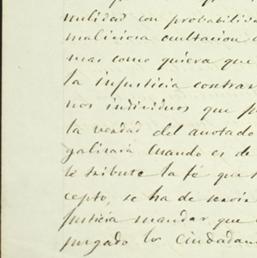 nulidad con probabilidad
maliciosa ocultacion
mas como quiera que
la injusticia contra
nos individuos que p
la verdad del anotado
galizará cuando es de
le tribute la fé que
cepto, se ha de servir
justicia mandar que
purgado los ciudadan